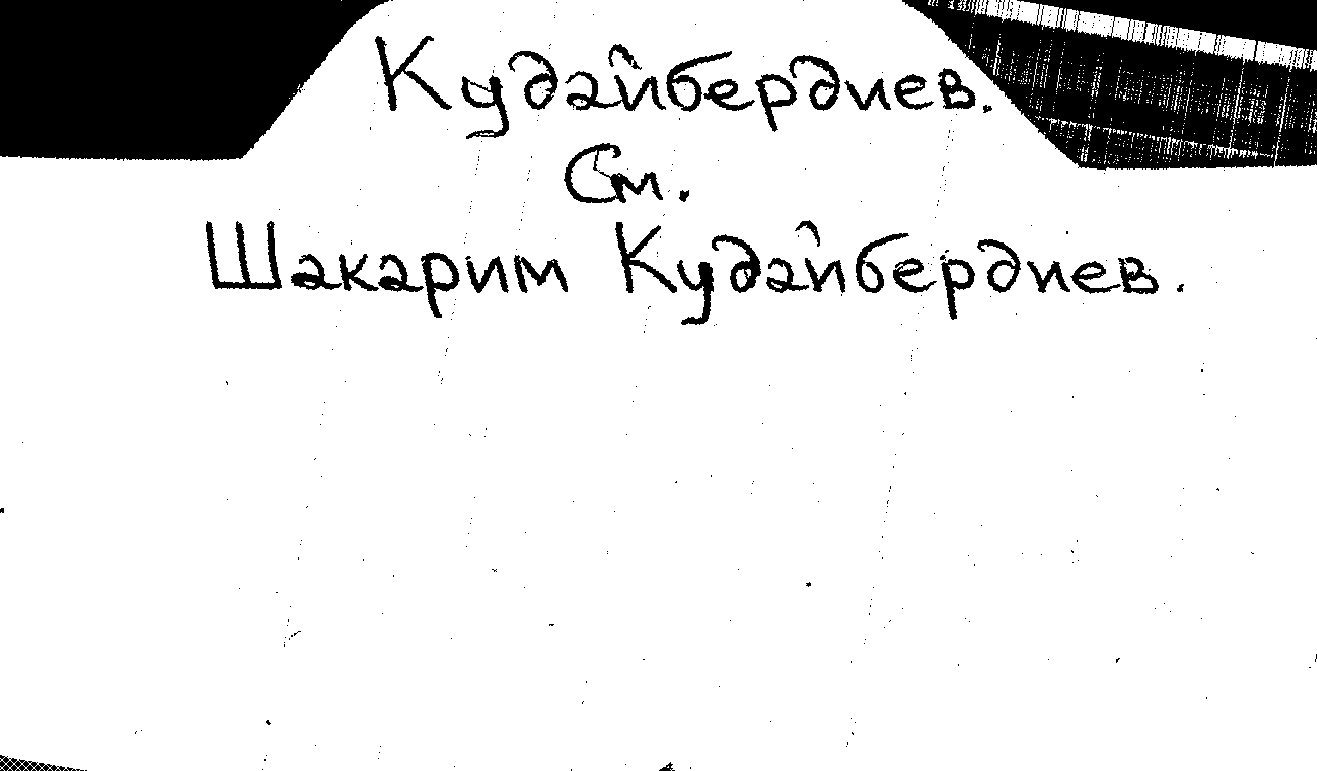 Кудайбердиев.
См.
Шакарим Кудайбердиев.